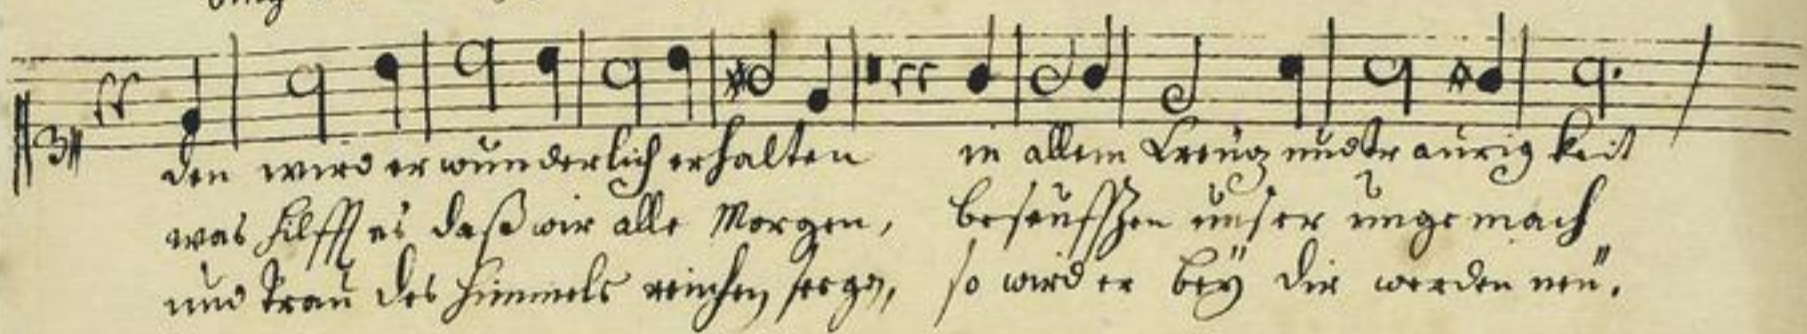 den wird er wunderlich erhalten in allem Creuz und Traurigkeit
was hilfft es daß wir alle Morgen, beseufftzen unser ungemach
und Trau des Himmels reichen segen, so wird er beÿ dir werden neü.